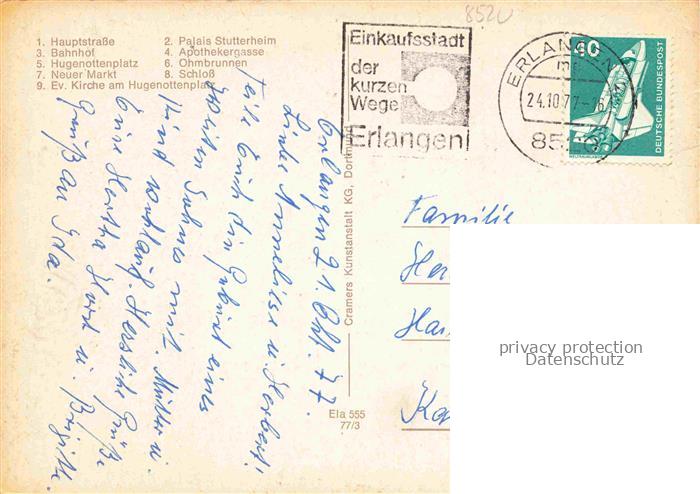 8520
1. Hauptstraße 2. Palais Stutterheim
3. Bahnhof 4. Apothekergasse
5. Hugenottenplatz 6. Ohmbrunnen
7. Neuer Markt 8. Schloß
9. Ev. Kirche am Hugenottenplatz
Einkaufsstadt
der
kurzen
Wege
Erlangen
ERLANGEN
24.10.77-16
8520
40
DEUTSCHE BUNDESPOST
Erlangen 21. Okt. 77.
Liebe Anneliese u. Herbert!
Teile Euch die Geburt eines
zweiten Sohnes mit. Mutter u.
Kind wohlauf. Herzliche Grüße
Eure Hertha Horst u. Brigitte.
Gruß an Ida.
Cramers Kunstanstalt KG, Dortmund
Ela 555
77/3
Familie
privacy protection
Datenschutz